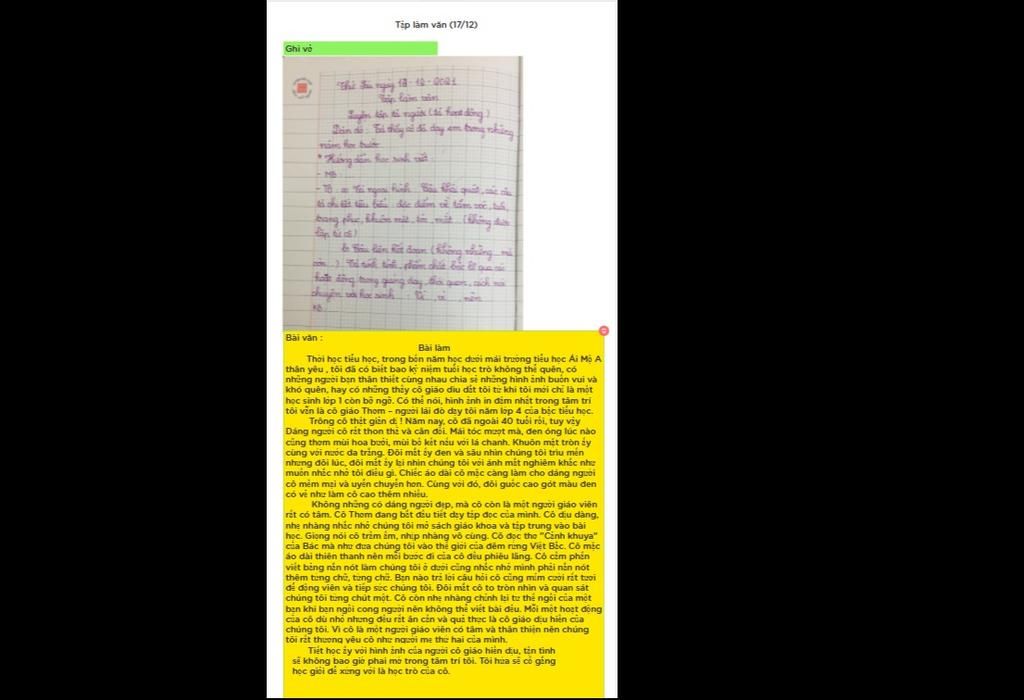 Tập làm văn (17/12)
Ghi vở
Thứ Sáu ngày 1 - 12 - 2021
Tập làm văn
Luyện tập tả người (tả hoạt động)
Dàn đề : Tả thầy cô đã dạy em trong những
năm học trước
* Hướng dẫn học sinh viết :
- MB : ...
- TB : a) Tả ngoại hình : Câu khái quát, các câu
tả chi tiết tiêu biểu : đặc điểm về tầm vóc, tuổi,
trang phục, khuôn mặt, tóc, mắt (không được
lặp từ cô)
b) Câu liên kết đoạn (không những... mà
còn...) Tả tính tình, phẩm chất bộc lộ qua các
hoạt động trong giảng dạy, thói quen, cách nói
chuyện với học sinh : Vì ... vì ... nên
KB ...
Bài văn :
Bài làm
Thời học tiểu học, trong bốn năm học dưới mái trường tiểu học Ái Mộ A
thân yêu , tôi đã có biết bao kỷ niệm tuổi học trò không thể quên, có
những người bạn thân thiết cùng nhau chia sẻ những hình ảnh buồn vui và
khó quên, hay có những thầy cô giáo dìu dắt tôi từ khi tôi mới chỉ là một
học sinh lớp 1 còn bỡ ngỡ. Có thể nói, hình ảnh in đậm nhất trong tâm trí
tôi vẫn là cô giáo Thơm – người lái đò dạy tôi năm lớp 4 của bậc tiểu học.
Trông cô thật giản dị ! Năm nay, cô đã ngoài 40 tuổi rồi, tuy vậy
Dáng người cô rất thon thả và cân đối. Mái tóc mượt mà, đen óng lúc nào
cũng thơm mùi hoa bưởi, mùi bồ kết nấu với lá chanh. Khuôn mặt tròn ấy
cùng với nước da trắng. Đôi mắt ấy đen và sâu nhìn chúng tôi trìu mến
nhưng đôi lúc, đôi mắt ấy lại nhìn chúng tôi với ánh mắt nghiêm khắc như
muốn nhắc nhở tôi điều gì. Chiếc áo dài cô mặc càng làm cho dáng người
cô mềm mại và uyển chuyển hơn. Cùng với đó, đôi guốc cao gót màu đen
có vẻ như làm cô cao thêm nhiều.
Không những có dáng người đẹp, mà cô còn là một người giáo viên
rất có tâm. Cô Thơm đang bắt đầu tiết dạy tập đọc của mình. Cô dịu dàng,
nhẹ nhàng nhắc nhở chúng tôi mở sách giáo khoa và tập trung vào bài
học. Giọng nói cô trầm ấm, nhịp nhàng vô cùng. Cô đọc thơ "Cảnh khuya"
của Bác mà như đưa chúng tôi vào thế giới của đêm rừng Việt Bắc. Cô mặc
áo dài thiên thanh nên mỗi bước đi của cô đều phiêu lãng. Cô cầm phấn
viết bảng nắn nót làm chúng tôi ở dưới cũng nhắc nhở mình phải nắn nót
thêm từng chữ, từng chữ. Bạn nào trả lời câu hỏi cô cũng mỉm cười rất tươi
để động viên và tiếp sức chúng tôi. Đôi mắt cô to tròn nhìn và quan sát
chúng tôi từng chút một. Cô còn nhẹ nhàng chỉnh lại tư thế ngồi của một
bạn khi bạn ngồi cong người nên không thể viết bài đều. Mỗi một hoạt động
của cô dù nhỏ nhưng đều rất ân cần và quả thực là cô giáo dịu hiền của
chúng tôi. Vì cô là một người giáo viên có tâm và thân thiện nên chúng
tôi rất thương yêu cô như người mẹ thứ hai của mình.
Tiết học ấy với hình ảnh của người cô giáo hiền dịu, tận tình
sẽ không bao giờ phai mờ trong tâm trí tôi. Tôi hứa sẽ cố gắng
học giỏi để xứng với là học trò của cô.